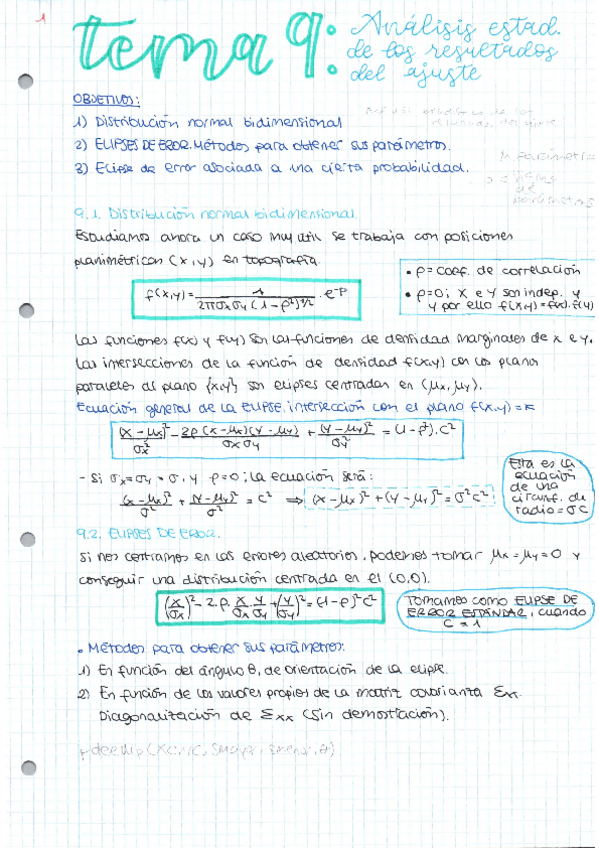 1
tema 9:
Análisis estad.
de los resultados
del ajuste
OBJETIVOS:
1) Distribución normal bidimensional
2) ELIPSES DE ERROR. Métodos para obtener sus parámetros.
3) Elipse de error asociada a una cierta probabilidad.
9.1. Distribución normal bidimensional
Estudiamos ahora un caso muy util se trabaja con posiciones
planimétricas (x,y) en topografía.
f(x,y) = 1 / 2πσxσy(1-ρ²)^1/2 · e^-P
• ρ = coef. de correlación
• ρ=0; X e Y son indep. y
y por ello f(x,y)=f(x)·f(y)
Las funciones f(x) y f(y) son las funciones de densidad marginales de x e y.
Las intersecciones de la función de densidad f(x,y) con los planos
paralelos al plano {x,y} son elipses centradas en (μx,μy).
Ecuación general de la ELIPSE, intersección con el plano f(x,y)=K
(x-μx)²/σx² - 2ρ(x-μx)(y-μy)/σxσy + (y-μy)²/σy² = (1-ρ²)·c²
- Si σx=σy=σ, y ρ=0; la ecuación será:
(x-μx)²/σ² + (y-μy)²/σ² = c² ⇒ (x-μx)²+(y-μy)²=σ²c²
Esta es la
ecuación
de una
circunf. de
radio = σc
9.2. ELIPSES DE ERROR.
Si nos centramos en los errores aleatorios, podemos tomar μx=μy=0 y
conseguir una distribución centrada en el (0,0).
(x/σx)² - 2·ρ·x/σx·y/σy + (y/σy)² = (1-ρ)²c²
Tomamos como ELIPSE DE
ERROR ESTÁNDAR, cuando
c=1
• Métodos para obtener sus parámetros.
1) En función del ángulo θ, de orientación de la elipse.
2) En función de los valores propios de la matriz covarianza Σxx.
Diagonalización de Σxx (sin demostración).